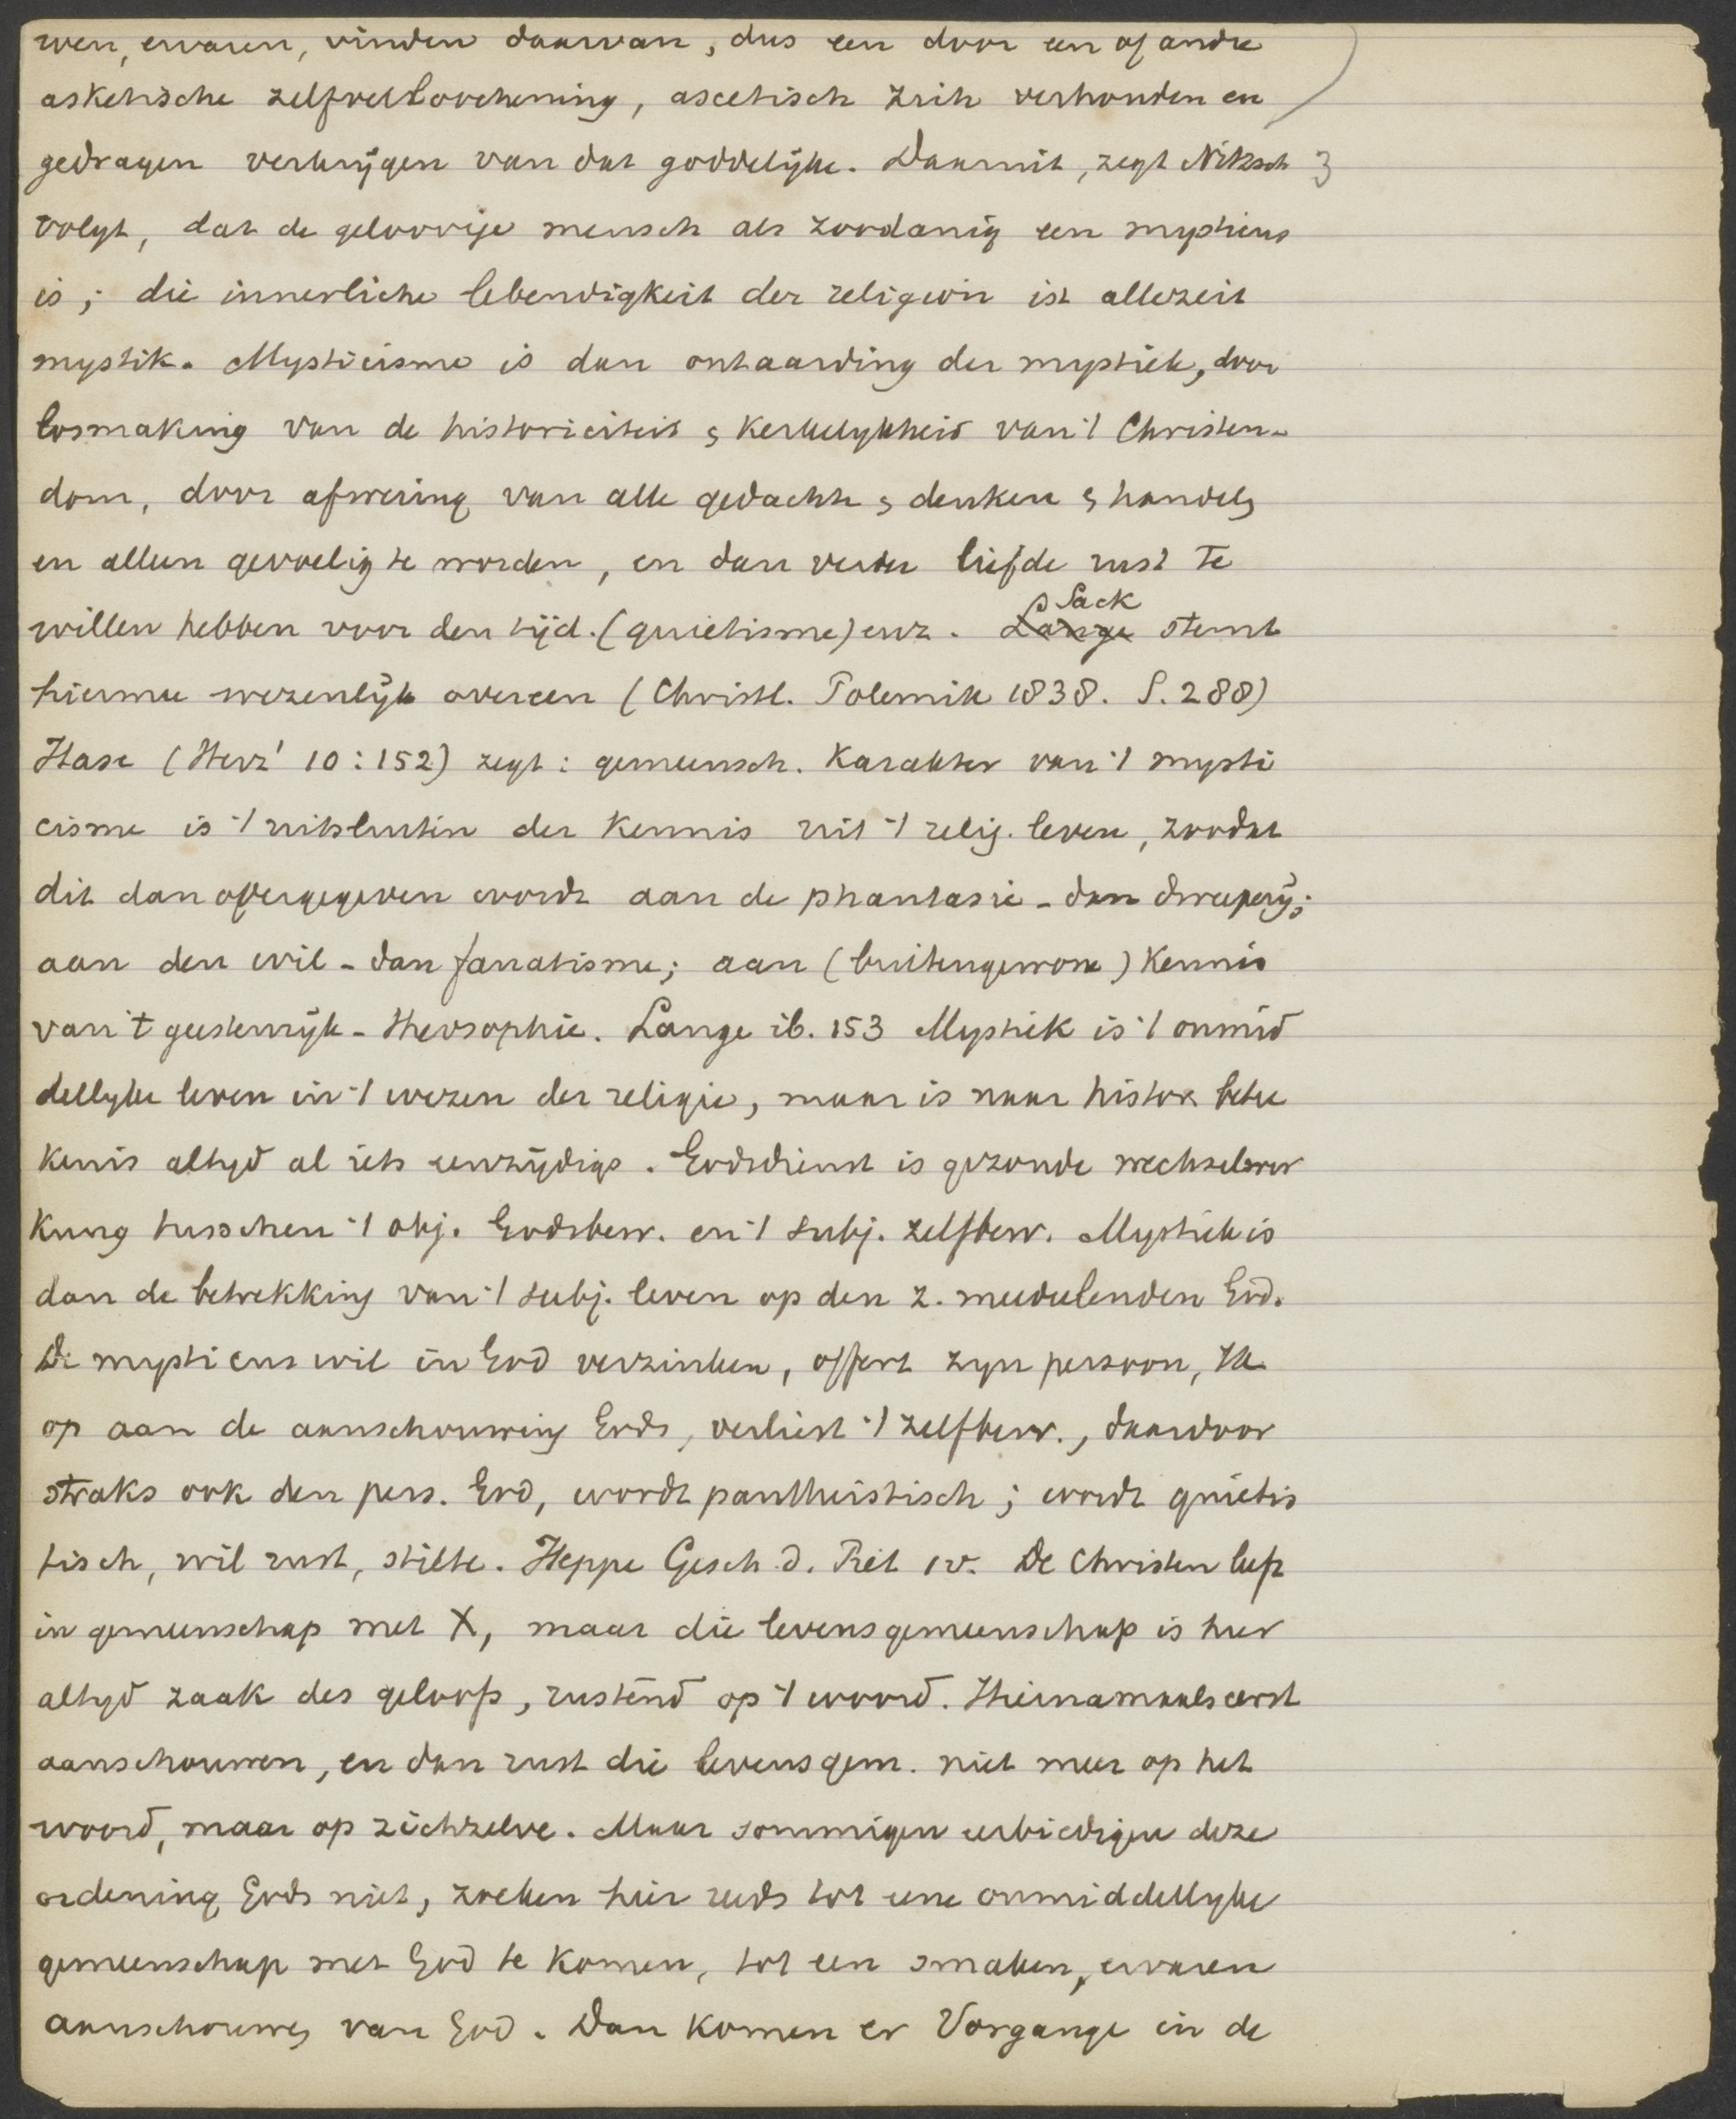 wen, ervaren, vinden daarvan, dus een door een of andre
asketische zelfvoorbereiding, ascetisch zich verhouden en
gedragen verkrijgen van dat goddelijke. Daarmit, zegt Nitzsch
volgt, dat de geloovige mensch als zoodanig een mysticus
is; die innerliche lebendigkeit der religion ist allezeit
mystik. Mysticisme is dan ontaarding der mystiek, door
losmaking van de historiciteit & kerkelijkheid van 't Christen-
dom, door afwering van alle gedachte & denken & handelg
en alleen gevoelig te worden, en dan verder liefde rust te
willen hebben voor den tijd. (quietisme) enz. Sack stemt
hiermee wezenlijk overeen (Christl. Polemik 1838. S. 288)
Hase (Herz' 10:152) zegt: gemeensch. karakter van 't mysti
cisme is 't uitsluiten der kennis uit 't relig. leven, zoodat
dit dan overgegeven wordt aan de phantasie - dan dweeperij;
aan den wil - dan fanatisme; aan (buitengewone) kennis
van 't geestenrijk - theosophie. Lange ib. 153 Mystiek is 't onmid
dellyke leven in 't wezen der religie, maar is naar histor. betee
kenis altyd al iets eenzijdigs. Godsdienst is gezonde wechselwer
kung tusschen 't obj. Godsbew. en 't subj. zelfbew. Mystiek is
dan de betrekking van 't subj. leven op den z. meedeelenden God.
De mysticus wil in God verzinken, offert zyn persoon, Ik
op aan de aanschouwing Gods, verliest 't zelfbew., daardoor
straks ook den pers. God, wordt pantheistisch; wordt quietis
tisch, wil rust, stilte. Heppe Gesch. d. Piet 1v. De Christen leeft
in gemeenschap met X, maar die levensgemeenschap is hier
altyd zaak des geloofs, rustend op 't woord. Hiernamaals eerst
aanschouwen, en dan rust die levensgem. niet meer op het
woord, maar op zichzelve. Maar sommigen eerbiedigen deze
ordening Gods niet, zoeken hier reeds tot eene onmiddellyke
gemeenschap met God te komen, tot een smaken, ervaren
aanschouwg van God. Dan komen er Vorgange in de